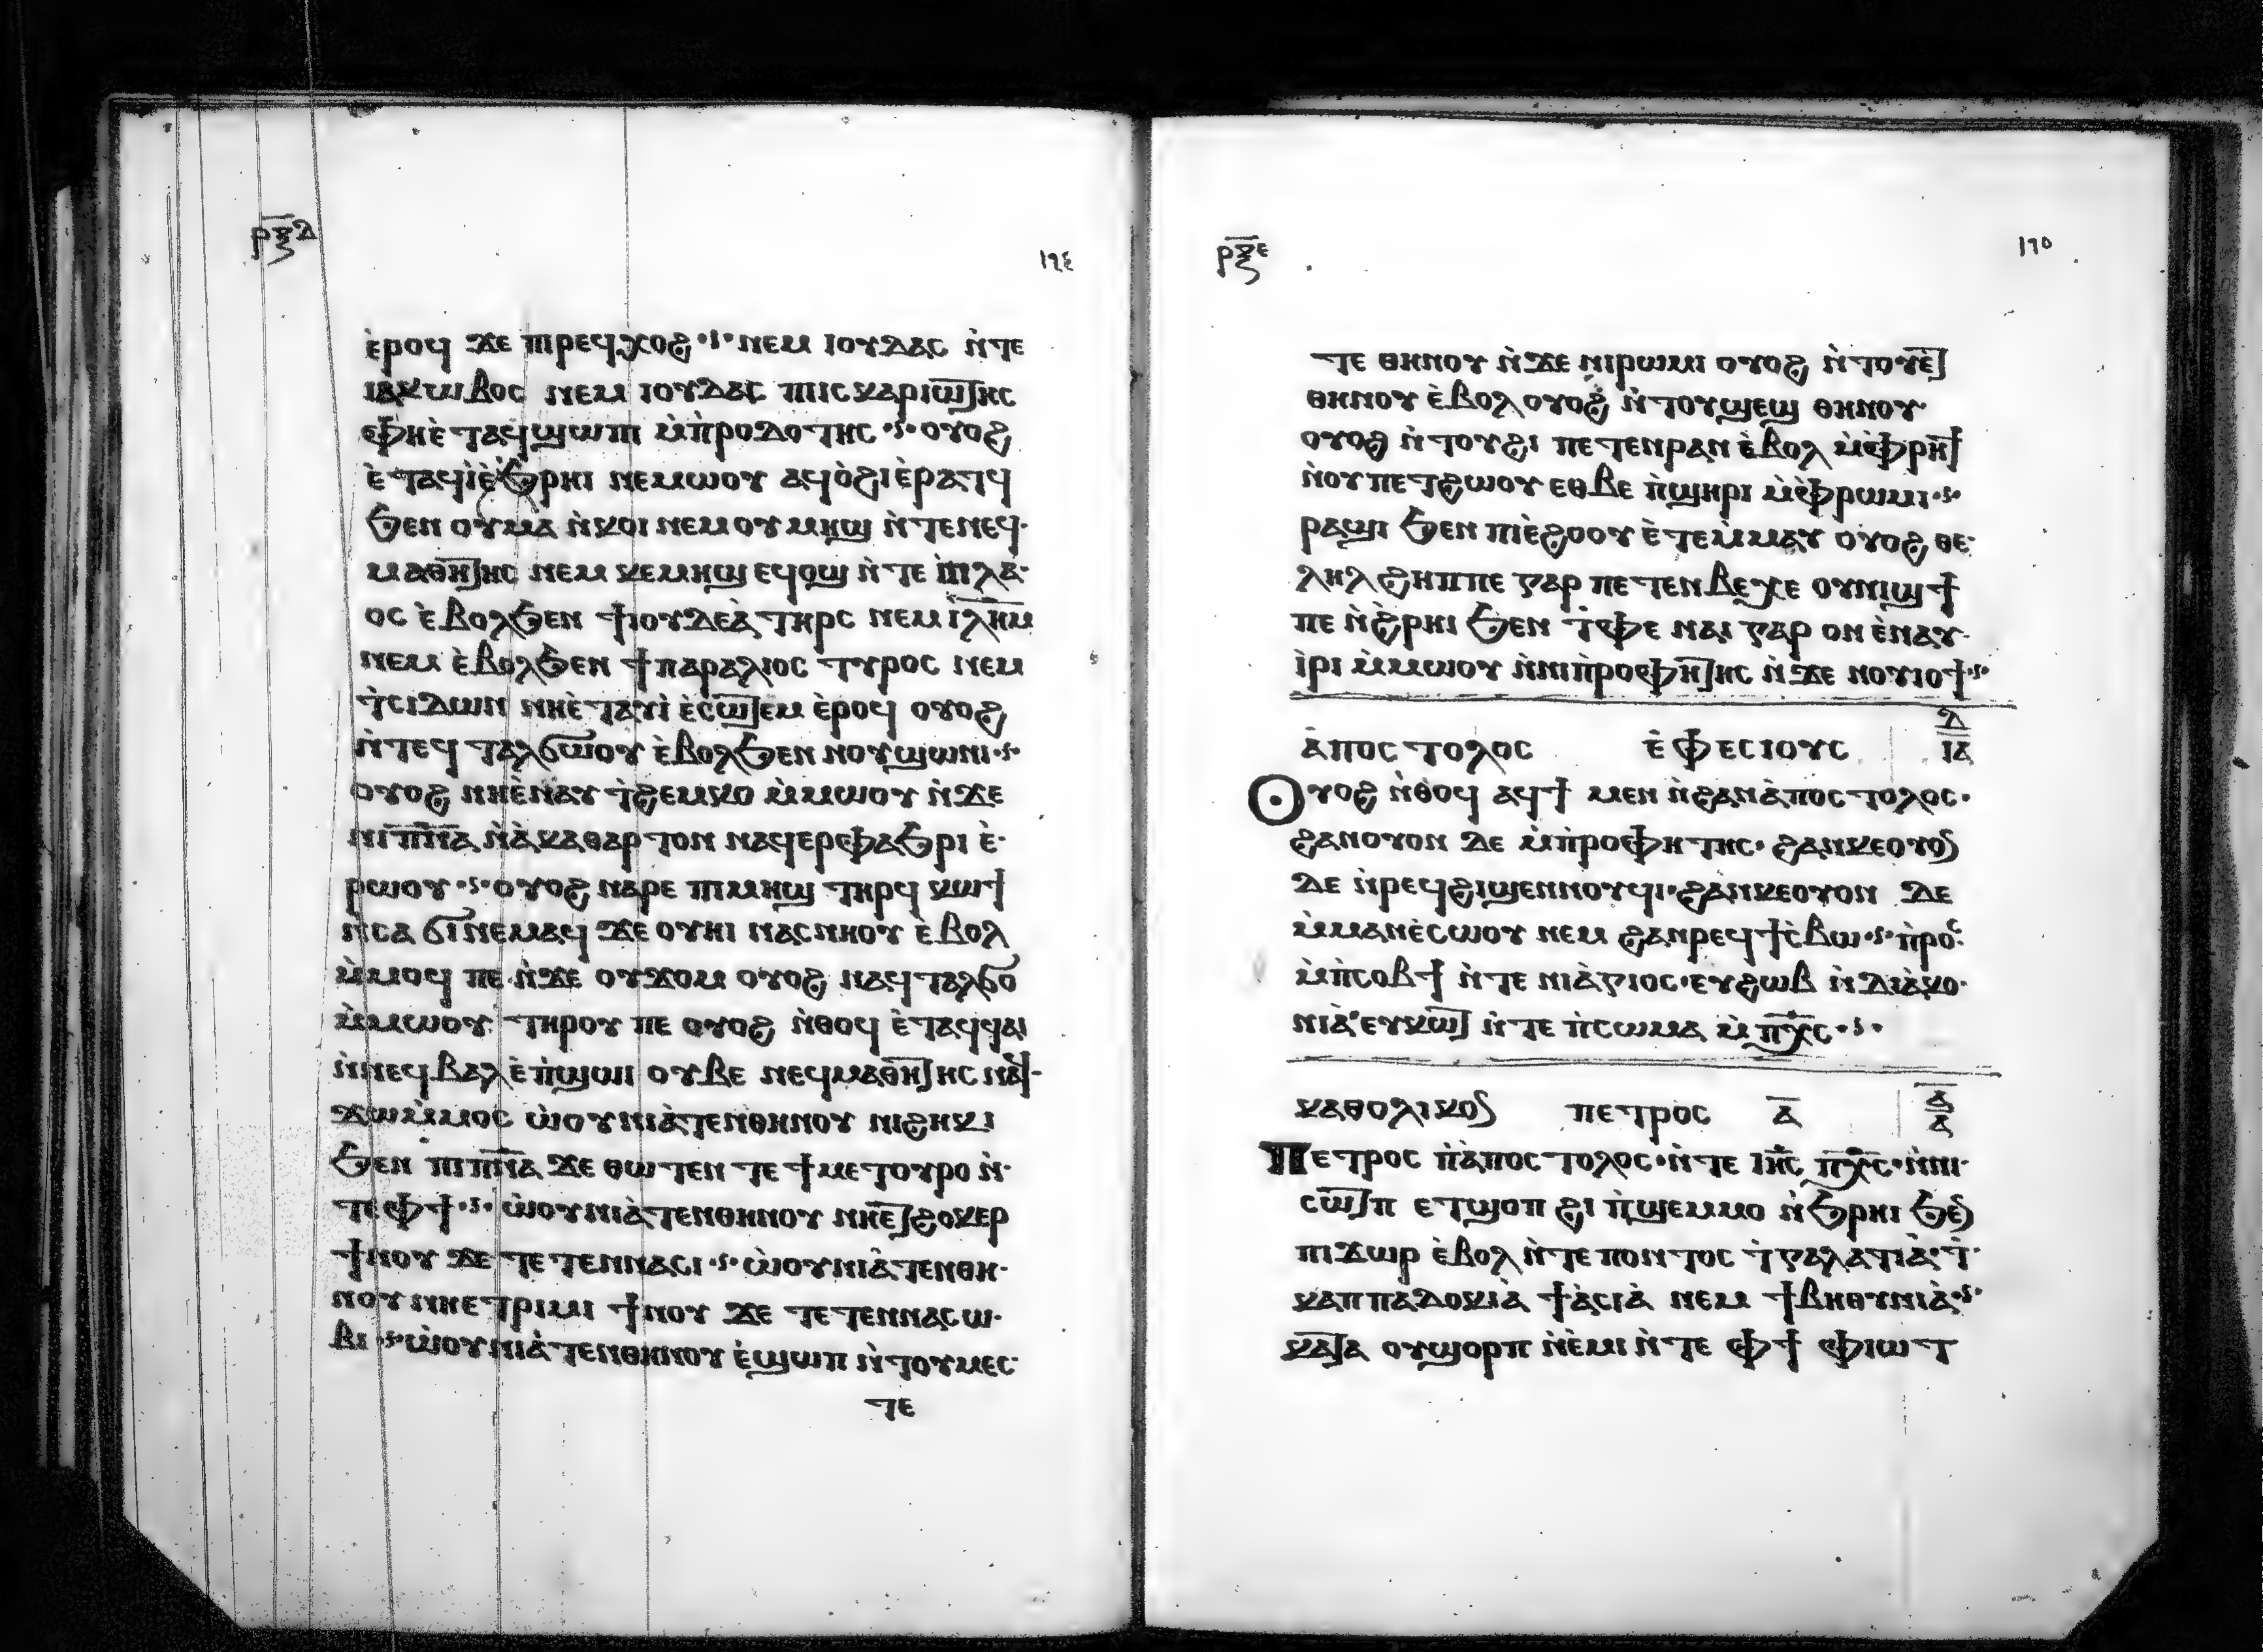 ⲣⲝⲇ
ⲉ̀ⲣⲟϥ ϫⲉ ⲡⲓⲣⲉϥⲭⲟϩ ⲛⲉⲙ ⲓⲟⲩⲇⲁⲥ ⲛ̀ⲧⲉ
ⲓⲁⲕⲱⲃⲟⲥ ⲛⲉⲙ ⲓⲟⲩⲇⲁⲥ ⲡⲓⲥⲕⲁⲣⲓⲱⲧⲏⲥ
ⲫⲏⲉ̀ⲧⲁϥϣⲱⲡⲓ ⲙ̀ⲡⲣⲟⲇⲟⲧⲏⲥ ⲟⲩⲟϩ
ⲉ̀ⲧⲁϥⲓ̀ⲉ̀ϧⲣⲏⲓ ⲛⲉⲙⲱⲟⲩ ⲁϥⲟ̀ϩⲓⲉ̀ⲣⲁⲧϥ
ϧⲉⲛ ⲟⲩⲙⲁ ⲛ̀ⲕⲟⲓ ⲛⲉⲙⲟⲩⲙⲏϣ ⲛ̀ⲧⲉⲛⲉϥ
ⲙⲁⲑⲏⲧⲏⲥ ⲛⲉⲙ ⲕⲉⲙⲏϣ ⲉϥⲟϣ ⲛ̀ⲧⲉ ⲡⲓⲗⲁ
ⲟⲥ ⲉ̀ⲃⲟⲗϧⲉⲛ ϯⲓⲟⲩⲇⲉⲁ̀ ⲧⲏⲣⲥ ⲛⲉⲙ ⲓ̅ⲗ̅ⲏ̅ⲙ̅
ⲛⲉⲙ ⲉ̀ⲃⲟⲗϧⲉⲛ ϯⲡⲁⲣⲁⲗⲓⲟⲥ ⲧⲩⲣⲟⲥ ⲛⲉⲙ
ⲧ̀ⲥⲓⲇⲱⲛ ⲛⲏⲉ̀ⲧⲁⲩⲓ̀ ⲉ̀ⲥⲱⲧⲉⲙ ⲉ̀ⲣⲟϥ ⲟⲩⲟϩ
ⲛ̀ⲧⲉϥⲧⲁⲗϭⲱⲟⲩ ⲉ̀ⲃⲟⲗϧⲉⲛ ⲛⲟⲩϣⲱⲛⲓ
ⲟⲩⲟϩ ⲛⲏⲉ̀ⲛⲁⲩⲧ̀ϩⲉⲙⲕⲟ ⲙ̀ⲙⲱⲟⲩ ⲛ̀ϫⲉ
ⲛⲓⲡ̅ⲛ̅ⲁ̅ ⲛ̀ⲁ̀ⲕⲁⲑⲁⲣⲧⲟⲛ ⲛⲁϥⲉⲣⲫⲁϧⲣⲓ ⲉ̀
ⲣⲱⲟⲩ ⲟⲩⲟϩ ⲛⲁⲣⲉ ⲡⲓⲙⲏϣ ⲧⲏⲣϥ ⲕⲱϯ
ⲛⲥⲁ ϭⲓⲛⲉⲙⲁϥ ϫⲉ ⲟⲩⲏⲓ ⲛⲁⲥⲛⲏⲟⲩ ⲉ̀ⲃⲟⲗ
ⲙ̀ⲙⲟϥ ⲡⲉ ⲛ̀ϫⲉ ⲟⲩϫⲟⲙ ⲟⲩⲟϩ ⲛⲁϥⲧⲁⲗϭⲟ
ⲙ̀ⲙⲱⲟⲩ ⲧⲏⲣⲟⲩ ⲡⲉ ⲟⲩⲟϩ ⲛ̀ⲑⲟϥ ⲉ̀ⲧⲁϥϥⲁⲓ
ⲛ̀ⲛⲉϥⲃⲁⲗ ⲉ̀ⲡ̀ϣⲱⲓ ⲟⲩⲃⲉ ⲛⲉϥⲙⲁⲑⲏⲧⲏⲥ ⲛⲁϥ
ϫⲱⲙ̀ⲙⲟⲥ ⲱ̀ⲟⲩⲛⲓⲁ̀ⲧⲉⲛⲑⲏⲛⲟⲩ ⲛⲓϩⲏⲕⲓ
ϧⲉⲛ ⲡⲓⲡ̅ⲛ̅ⲁ̅ ϫⲉ ⲑⲱⲧⲉⲛ ⲧⲉ ϯⲙⲉⲧⲟⲩⲣⲟ ⲛ̀
ⲧⲉⲫϯ ⲱ̀ⲟⲩⲛⲓⲁ̀ⲧⲉⲛⲑⲏⲛⲟⲩ ⲛⲏⲉⲧϩⲟⲕⲉⲣ
ϯⲛⲟⲩ ϫⲉ ⲧⲉⲧⲉⲛⲛⲁⲥⲓ ⲱ̀ⲟⲩⲛⲓⲁ̀ⲧⲉⲛⲑⲏ
ⲛⲟⲩ ⲛⲏⲉⲧⲣⲓⲙⲓ ϯⲛⲟⲩ ϫⲉ ⲧⲉⲧⲉⲛⲛⲁⲥⲱ
ⲃⲓ ⲱ̀ⲟⲩⲛⲓⲁ̀ⲧⲉⲛⲑⲏⲛⲟⲩ ⲉ̀ϣⲱⲡ ⲛ̀ⲧⲟⲩⲙⲉⲥ
ⲧⲉ
ⲣⲝⲉ
ⲧⲉ ⲑⲏⲛⲟⲩ ⲛ̀ϫⲉ ⲛⲓⲣⲱⲙⲓ ⲟⲩⲟϩ ⲛ̀ⲧⲟⲩⲉⲧ
ⲑⲏⲛⲟⲩ ⲉ̀ⲃⲟⲗ ⲟⲩⲟϩ ⲛ̀ⲧⲟⲩϣⲉϣ ⲑⲏⲛⲟⲩ
ⲟⲩⲟϩ ⲛ̀ⲧⲟⲩϩⲓ ⲡⲉⲧⲉⲛⲣⲁⲛ ⲉ̀ⲃⲟⲗ ⲙ̀ⲫⲣⲏϯ
ⲛ̀ⲟⲩⲡⲉⲧϩⲱⲟⲩ ⲉⲑⲃⲉ ⲡ̀ϣⲏⲣⲓ ⲙ̀ⲫⲣⲱⲙⲓ
ⲣⲁϣⲓ ϧⲉⲛ ⲡⲓⲉ̀ϩⲟⲟⲩ ⲉ̀ⲧⲉⲙ̀ⲙⲁⲩ ⲟⲩⲟϩ ⲑⲉ
ⲗⲏⲗ ϩⲏⲡⲡⲉ ⲅⲁⲣ ⲡⲉⲧⲉⲛⲃⲉⲭⲉ ⲟⲩⲛⲓϣϯ
ⲡⲉ ⲛ̀ϩ̀ⲣⲏⲓ ϧⲉⲛ ⲧ̀ⲫⲉ ⲛⲁⲓ ⲅⲁⲣ ⲟⲛ ⲉ̀ⲛⲁⲩ
ⲓ̀ⲣⲓ ⲙ̀ⲙⲱⲟⲩ ⲛ̀ⲛⲓⲡ̀ⲣⲟⲫⲏⲧⲏⲥ ⲛ̀ϫⲉ ⲛⲟⲩⲓⲟϯ
ⲁ̀ⲡⲟⲥⲧⲟⲗⲟⲥ ⲉ̀ⲫⲉⲥⲓⲟⲩⲥ ⲇ̅ ⲓ̅ⲁ̅
Ⲟⲩⲟϩ ⲛ̀ⲑⲟϥ ⲁϥϯ ⲙⲉⲛ ⲛ̀ϩⲁⲛⲁ̀ⲡⲟⲥⲧⲟⲗⲟⲥ
ϩⲁⲛⲟⲩⲟⲛ ⲇⲉ ⲙ̀ⲡ̀ⲣⲟⲫⲏⲧⲏⲥ ϩⲁⲛⲕⲉⲟⲩⲟⲛ
ⲇⲉ ⲛ̀ⲣⲉϥϩⲓϣⲉⲛⲛⲟⲩϥⲓ ϩⲁⲛⲕⲉⲟⲩⲟⲛ ⲇⲉ
ⲙ̀ⲙⲁⲛⲉ̀ⲥⲱⲟⲩ ⲛⲉⲙ ϩⲁⲛⲣⲉϥϯⲥ̀ⲃⲱ ⲡ̀ⲣⲟⲥ
ⲙ̀ⲡ̀ⲥⲟⲃϯ ⲛ̀ⲧⲉ ⲛⲓⲁ̀ⲅⲓⲟⲥ ⲉⲩϩⲱⲃ ⲛ̀ⲇⲓⲁ̀ⲕⲟ
ⲛⲓⲁ̀ ⲉⲩⲕⲱⲧ ⲛ̀ⲧⲉ ⲡ̀ⲥⲱⲙⲁ ⲙ̀ⲡⲭ̅ⲥ̅
ⲕⲁⲑⲟⲗⲓⲕⲟⲛ ⲡⲉⲧⲣⲟⲥ ⲁ̅ ⲁ̅ ⲁ̅
Ⲡⲉⲧⲣⲟⲥ ⲡ̀ⲁ̀ⲡⲟⲥⲧⲟⲗⲟⲥ ⲛ̀ⲧⲉ ⲓⲏ̅ⲥ̅ ⲡⲭ̅ⲥ̅ ⲛ̀ⲛⲓ
ⲥⲱⲧⲡ ⲉⲧϣⲟⲡ ϩⲓ ⲡ̀ϣⲉⲙⲙⲟ ⲛ̀ϧⲣⲏⲓ ϧⲉⲛ
ⲡⲓϫⲱⲣ ⲉ̀ⲃⲟⲗ ⲛ̀ⲧⲉ ⲡⲟⲛⲧⲟⲥ ⲧ̀ⲅⲁⲗⲁⲧⲓⲁ̀ ⲧ̀
ⲕⲁⲡⲡⲁⲇⲟⲕⲓⲁ̀ ϯⲁ̀ⲥⲓⲁ̀ ⲛⲉⲙ ϯⲃⲏⲑⲩⲛⲓⲁ̀
ⲕⲁⲧⲁ ⲟⲩϣⲟⲣⲡ ⲛ̀ⲉ̀ⲙⲓ ⲛ̀ⲧⲉ ⲫϯ ⲫⲓⲱⲧ